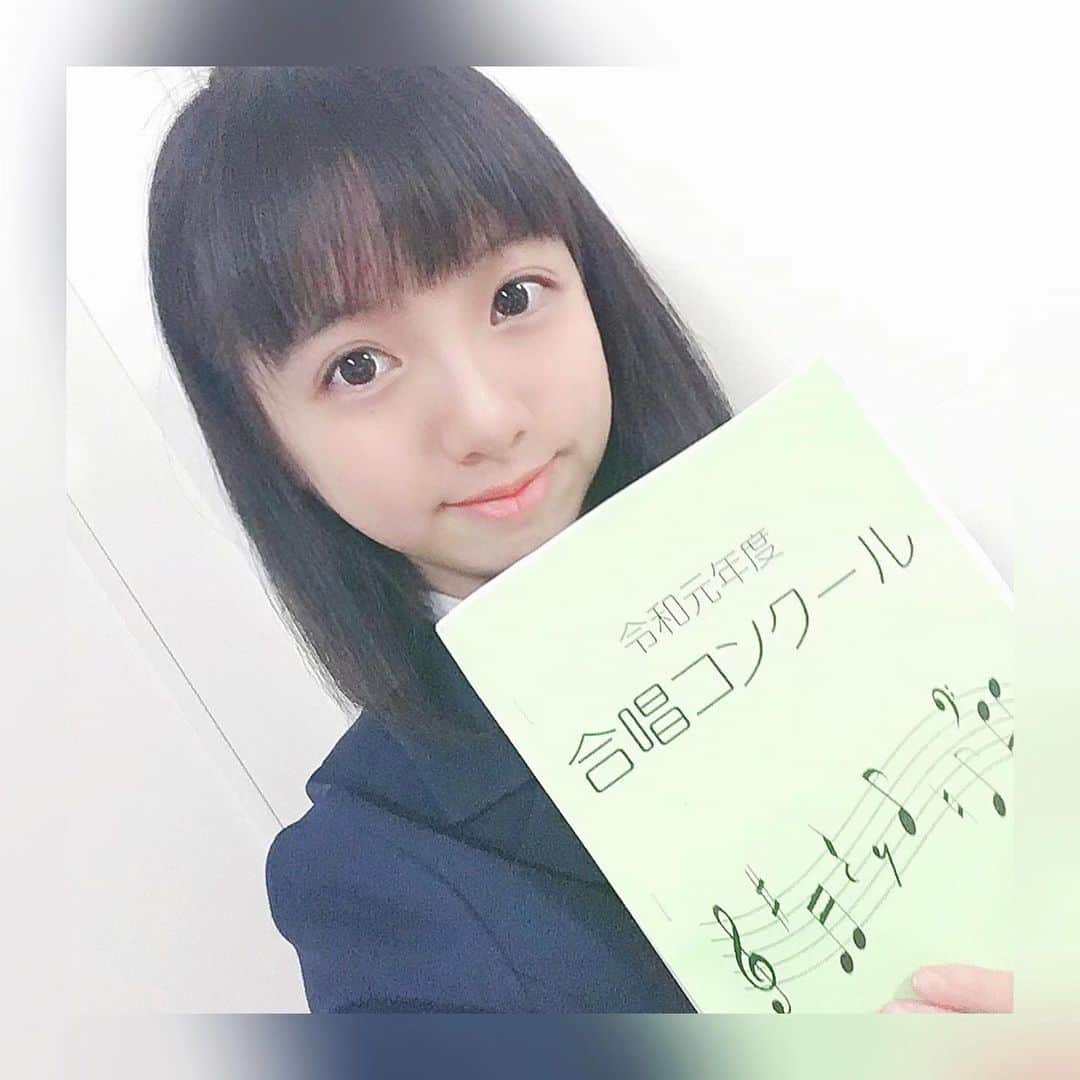 令和元年度
合唱コンクール